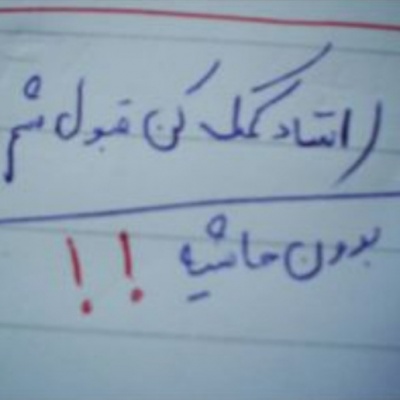 استاد کمک کن قبول شم
بدون حاشیه !!